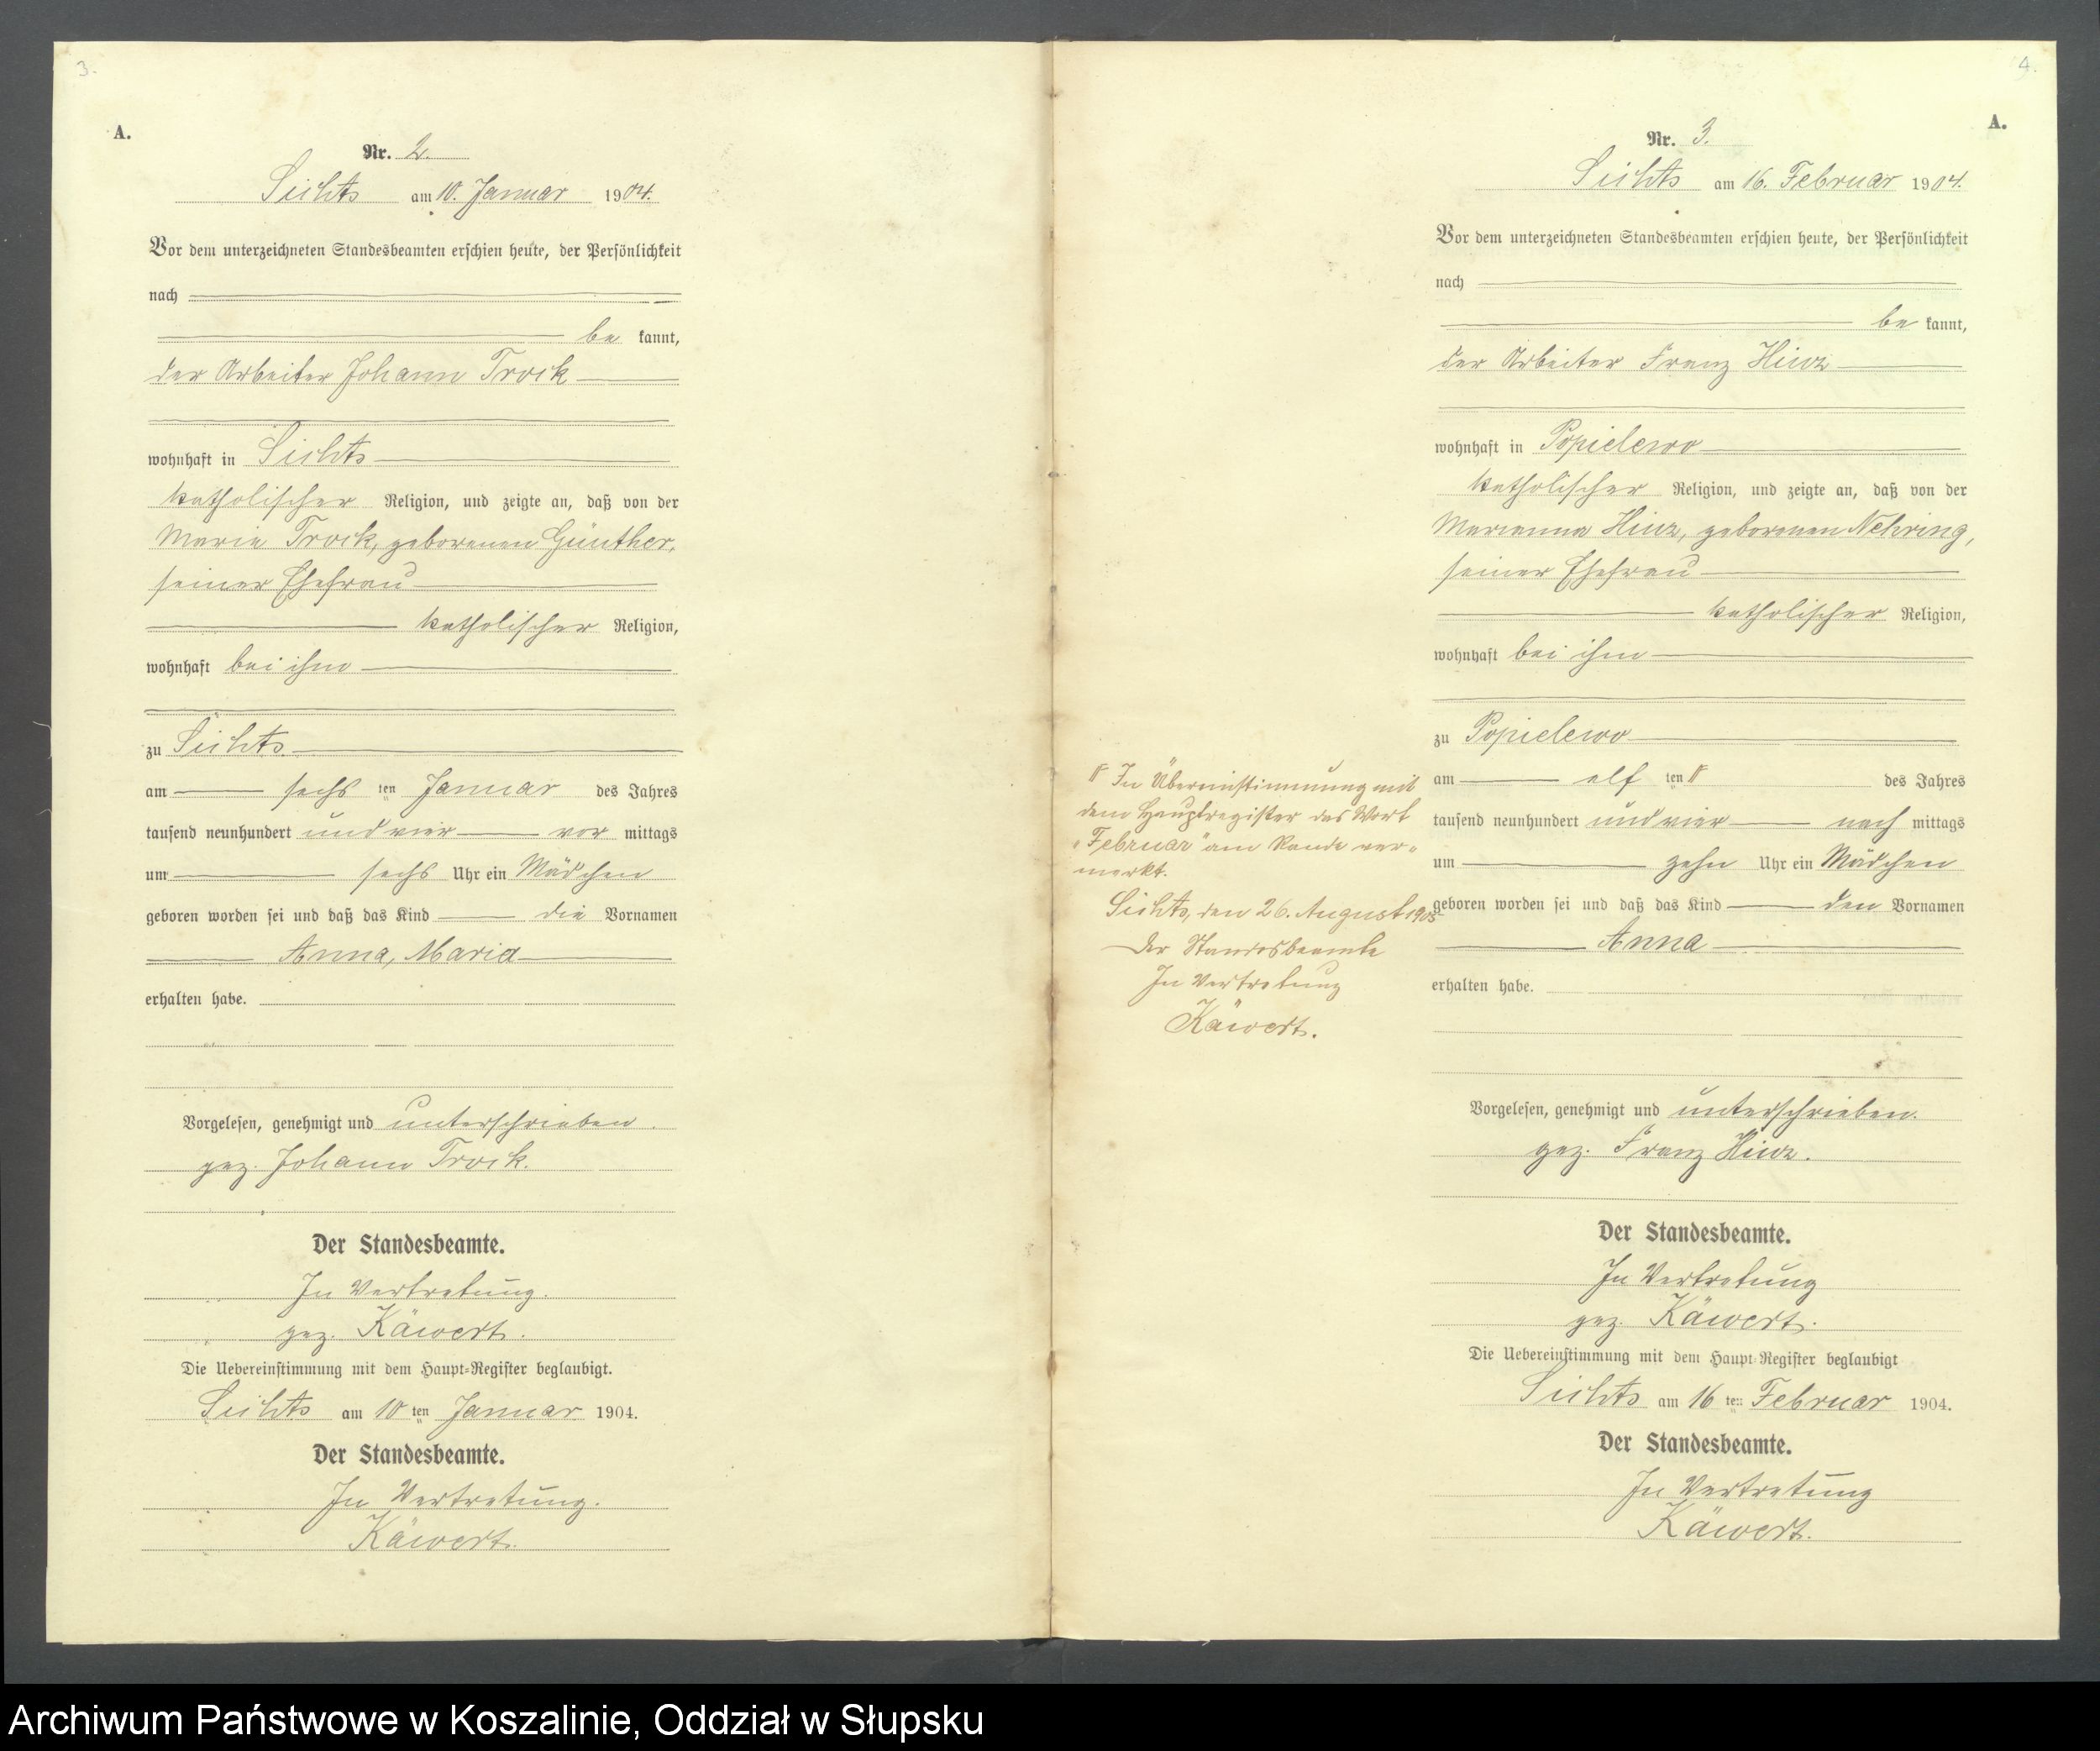 3.
A.
Nr. 2.
Lichts am 10. Januar 1904.
Vor dem unterzeichneten Standesbeamten erschien heute, der Persönlichkeit
nach
be kannt,
der Arbeiter Johann Trock
wohnhaft in Lichts
katholischer Religion, und zeigte an, daß von der
Marie Trock, geborenen Günther,
seiner Ehefrau
katholischer Religion,
wohnhaft bei ihm
zu Lichts
am sechs ten Januar des Jahres
tausend neunhundert und vier vor mittags
um sechs Uhr ein Mädchen
geboren worden sei und daß das Kind die Vornamen
Anna, Maria
erhalten habe.
Vorgelesen, genehmigt und unterschrieben.
gez. Johann Trock.
Der Standesbeamte.
In Vertretung.
gez. Käwert.
Die Uebereinstimmung mit dem Haupt-Register beglaubigt.
Lichts am 10 ten Januar 1904.
Der Standesbeamte.
In Vertretung.
Käwert.
4.
A.
Nr. 3.
Lichts am 16. Februar 1904.
Vor dem unterzeichneten Standesbeamten erschien heute, der Persönlichkeit
nach
be kannt,
der Arbeiter Franz Hinz
wohnhaft in Popielewo
katholischer Religion, und zeigte an, daß von der
Marianna Hinz, geborenen Nehring,
seiner Ehefrau
katholischer Religion,
wohnhaft bei ihm
zu Popielewo
am elf ten des Jahres
tausend neunhundert und vier nach mittags
um zehn Uhr ein Mädchen
geboren worden sei und daß das Kind den Vornamen
Anna
erhalten habe.
Vorgelesen, genehmigt und unterschrieben.
gez. Franz Hinz.
Der Standesbeamte.
In Vertretung
gez. Käwert.
Die Uebereinstimmung mit dem Haupt-Register beglaubigt
Lichts am 16 ten Februar 1904.
Der Standesbeamte.
In Vertretung
Käwert.
In Übereinstimmung mit
dem Hauptregister das Wort
„Februar" am Rande ver-
merkt.
Lichts, den 26. August 1905
Der Standesbeamte
In Vertretung
Käwert.
Archiwum Państwowe w Koszalinie, Oddział w Słupsku